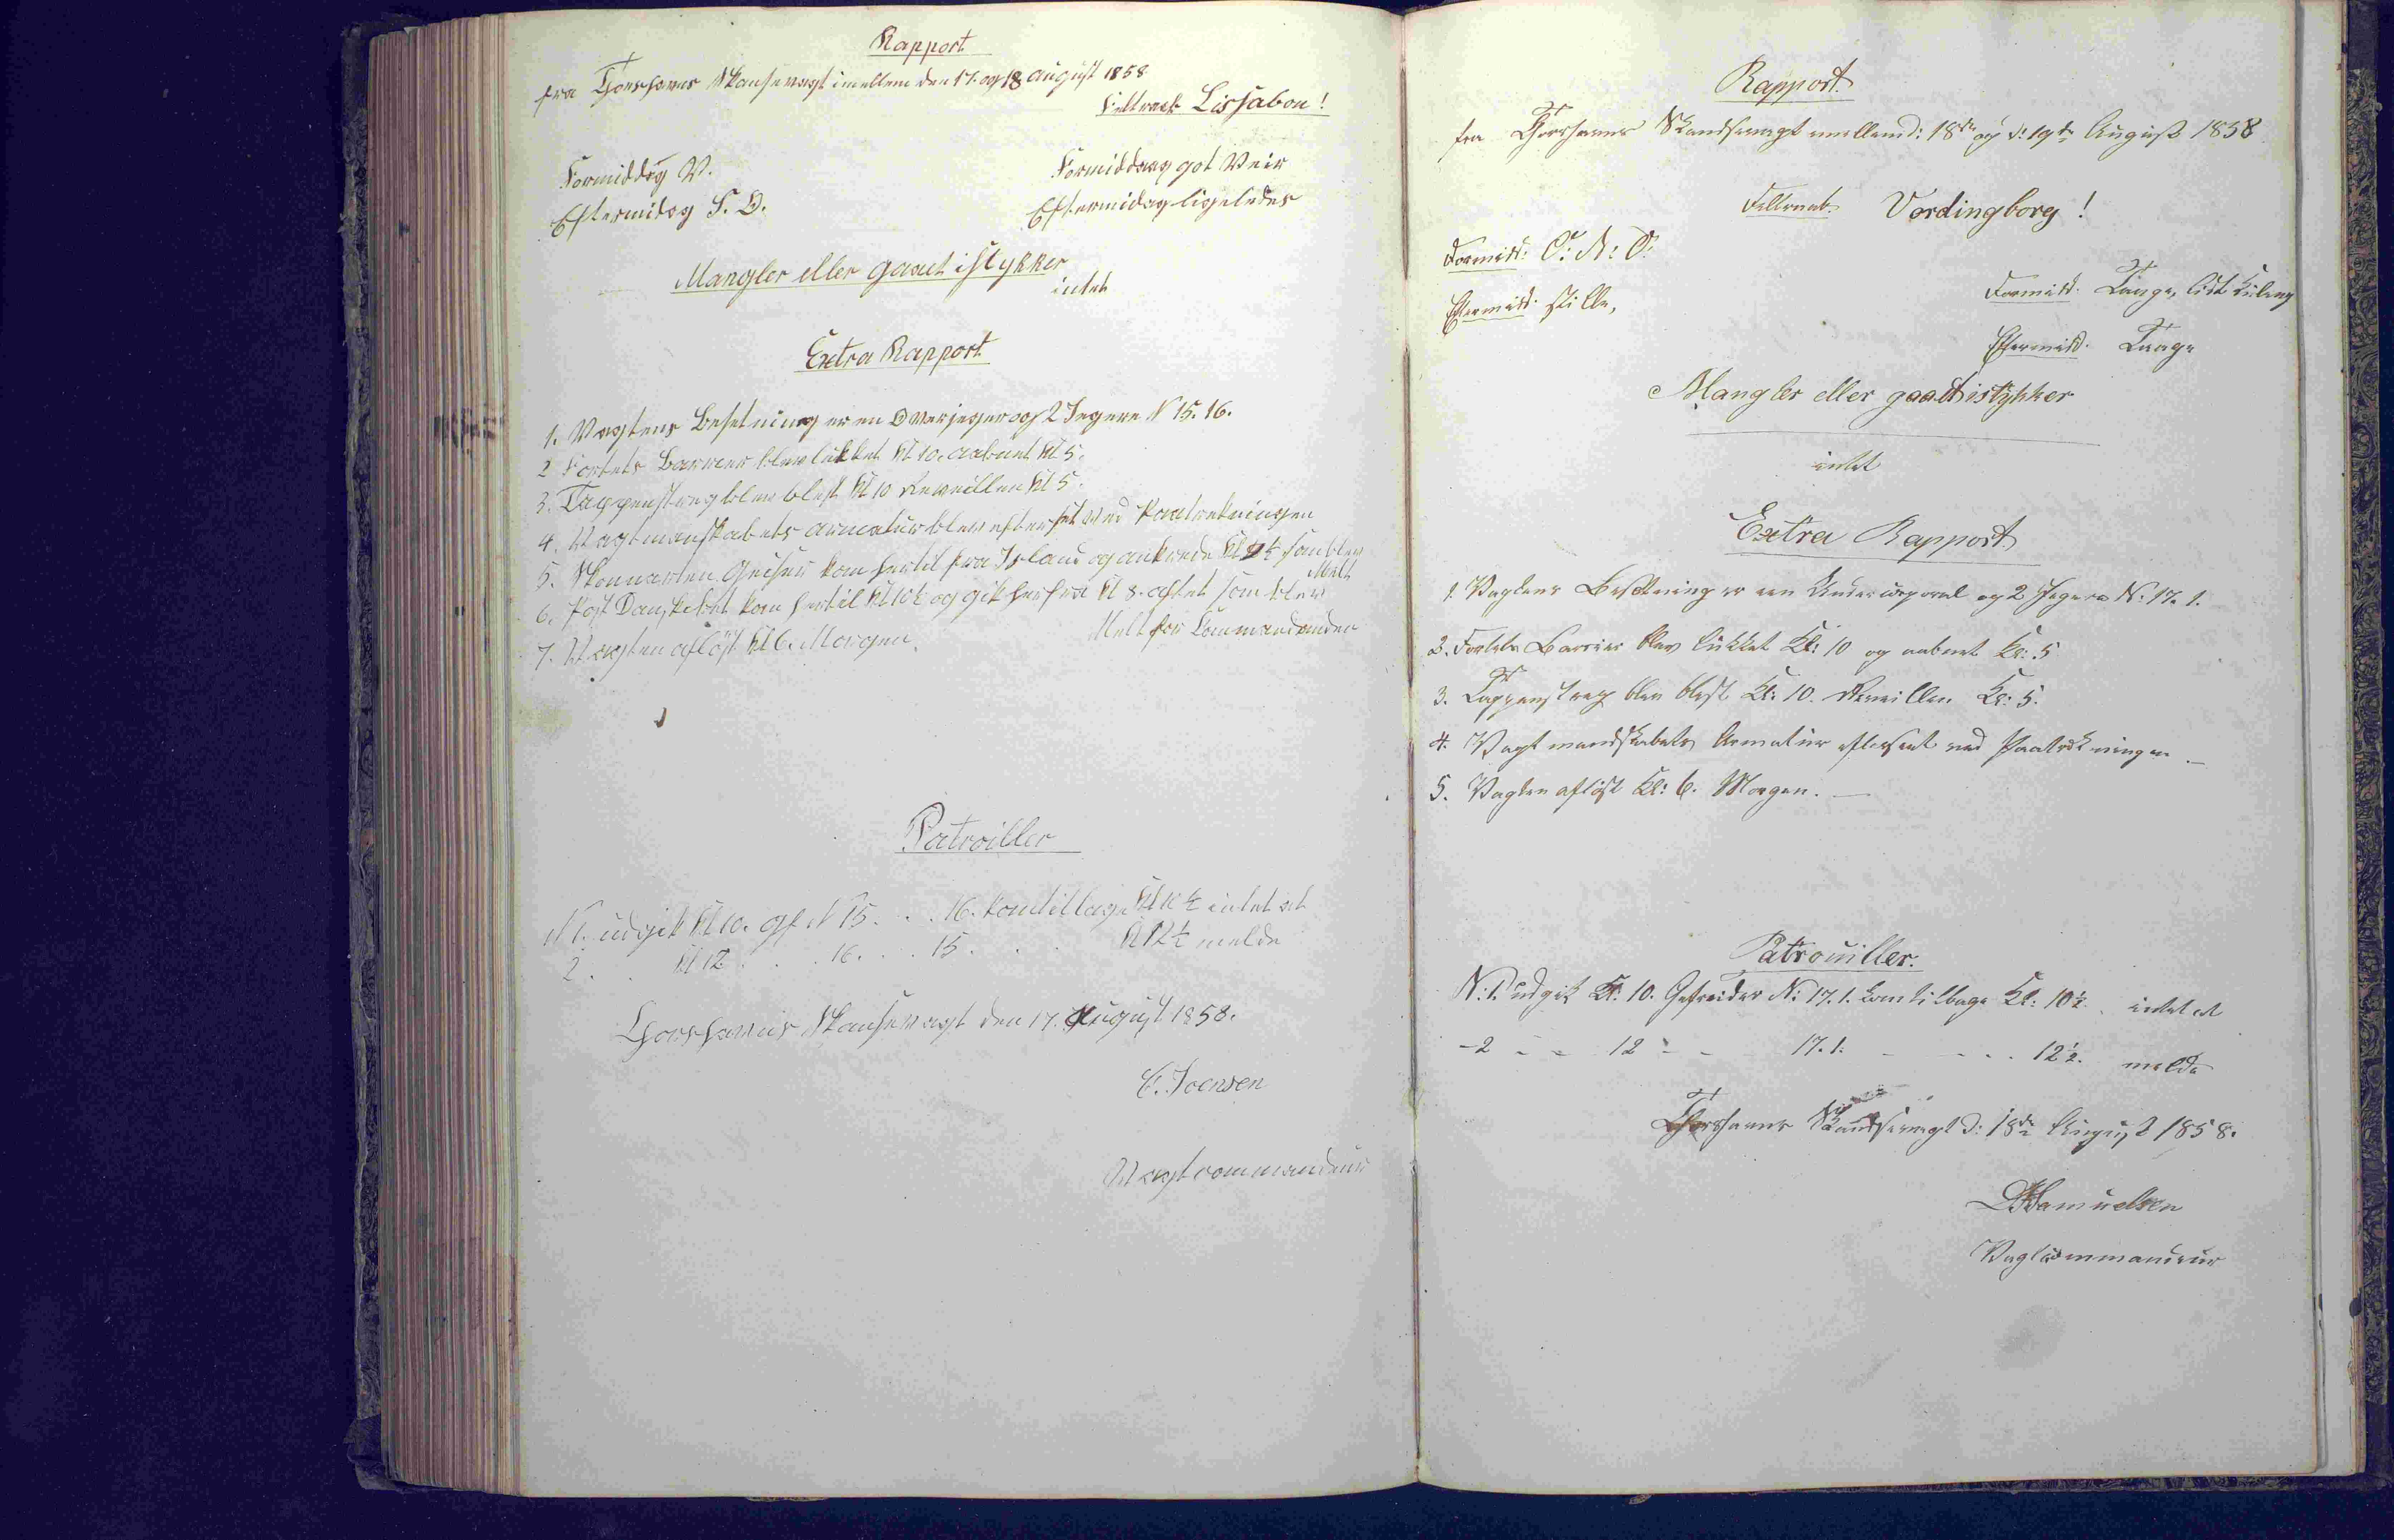 Rapport
fra Thorshavns Skansevagt imellem den 17. og 18 August 1858
Feltraab Lissabon!
Formiddag V.
Formiddag got Veir
Eftermidag S. O.
Eftermidag ligeledes
Mangler eller gaaet istykker
intet
Extra Rapport
1. Vagtens Besetning er en Overjeger og 2 Jegere N 15. 16.
2 Fortets Barrier blev lukket Kl 10. aabnet Kl 5.
3. Tappenstreg blev blest Kl 10 Reveillen Kl 5.
4. Vagtmanskabets armatur blev efterset ved Paatredningen
5. Skonnarten Geiser kom hertil fra Island og ankrede Kl som blev
Melt
6. Post Dampskibet kom hertil Kl 10½ og gik herfra Kl 8. aftet som blev
Melt for Commandanden
7. Vagten afløst Kl 6. Morgen.
Patroiller
N 1. udgik Kl 10. gf. N 15. . . 16. kom tilbage Kl 10½ intet at
2. . Kl 12 . . . 16. . . 15. . . Kl 12½ melde
Thorshavns Skansevagt den 17. August 1858.
C. Joensen
Vagtcommandeur
Rapport
fra Thorshavns Skandsevagt mellem d: 18de og d: 19de August 1858
Feltraab. Vordingborg!
Formidd: O: N: O:
Formidd. Taage, lidt Kuling
Eftermidd. stille,
Eftermidd. Taage
Mangler eller gaaet istykker
intet
Extra Rapport
1. Vagtens Besætning er een Undercorporal og 2 Jegere N: 17. 1.
2. Fortets Barrier blev lukket Kl: 10 og aabnet Kl: 5
3. Tappenstreg blev blest Kl: 10. Reveillen Kl: 5.
4. Vagtmandskabets Armatur efterseet ved Paatrædningen
5. Vagten afløst Kl: 6. Morgen.
Patrouiller.
N: 1. udgik Kl: 10. Gefreider N: 17. 1. kom tilbage Kl: 10½. intet at
- 2 - - 12 - - 17. 1. - - - - 12½. melde
Thorshavns Skandsevagt d: 18de August 1858.
Samuelsen
Vagtcommandeur